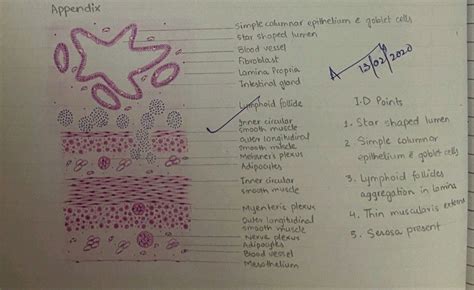 Appendix
Simple columnar epithelium & goblet cells
Star shaped lumen
Blood vessel
Fibroblast
Lamina Propria
Intestinal gland
Lymphoid follicle
Inner circular
smooth muscle
Outer longitudinal
smooth muscle
Meisner's plexus
Adipocytes
Inner circular
smooth muscle
Myenteric plexus
Outer longitudinal
smooth muscle
Nerve plexus
Adipocytes
Blood vessel
Mesothelium
13/02/2020
I.D Points
1. Star shaped lumen
2. Simple columnar
epithelium & goblet cells
3. Lymphoid follicles
aggregation in lamina
4. Thin muscularis externa
5. Serosa present